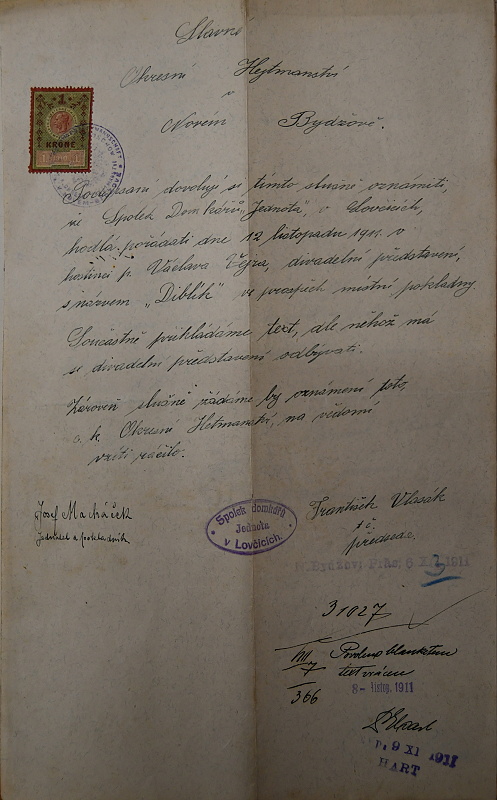 Slavné
Okresní Hejtmanství
v
Novém Bydžově.
1
KRONE
Podepsaní dovolují si tímto slušně oznámiti,
že Spolek Domkářů „Jednota", v Lovčicích,
hodlá pořádati dne 12 listopadu 1911. v
hostinci p. Václava Vejra, divadelní představení,
s názvem „Diblík" ve prospěch místní pokladny.
Současně přikládáme text, dle něhož má
se divadelní představení odbývati.
Zároveň slušně žádáme by oznámení toto,
c. k. Okresní Hetmanství, na vědomí
vzíti ráčilo.
Josef Macháček
Jednatel a pokladník
Spolek domkářů
Jednota
v Lovčicích.
František Vlasák
t č.
předseda.
N. Bydžov; Präs. 6 XI 1911
3
31027
VII
7
366
text vrácen
8- listop. 1911
9 XI 1911
HART